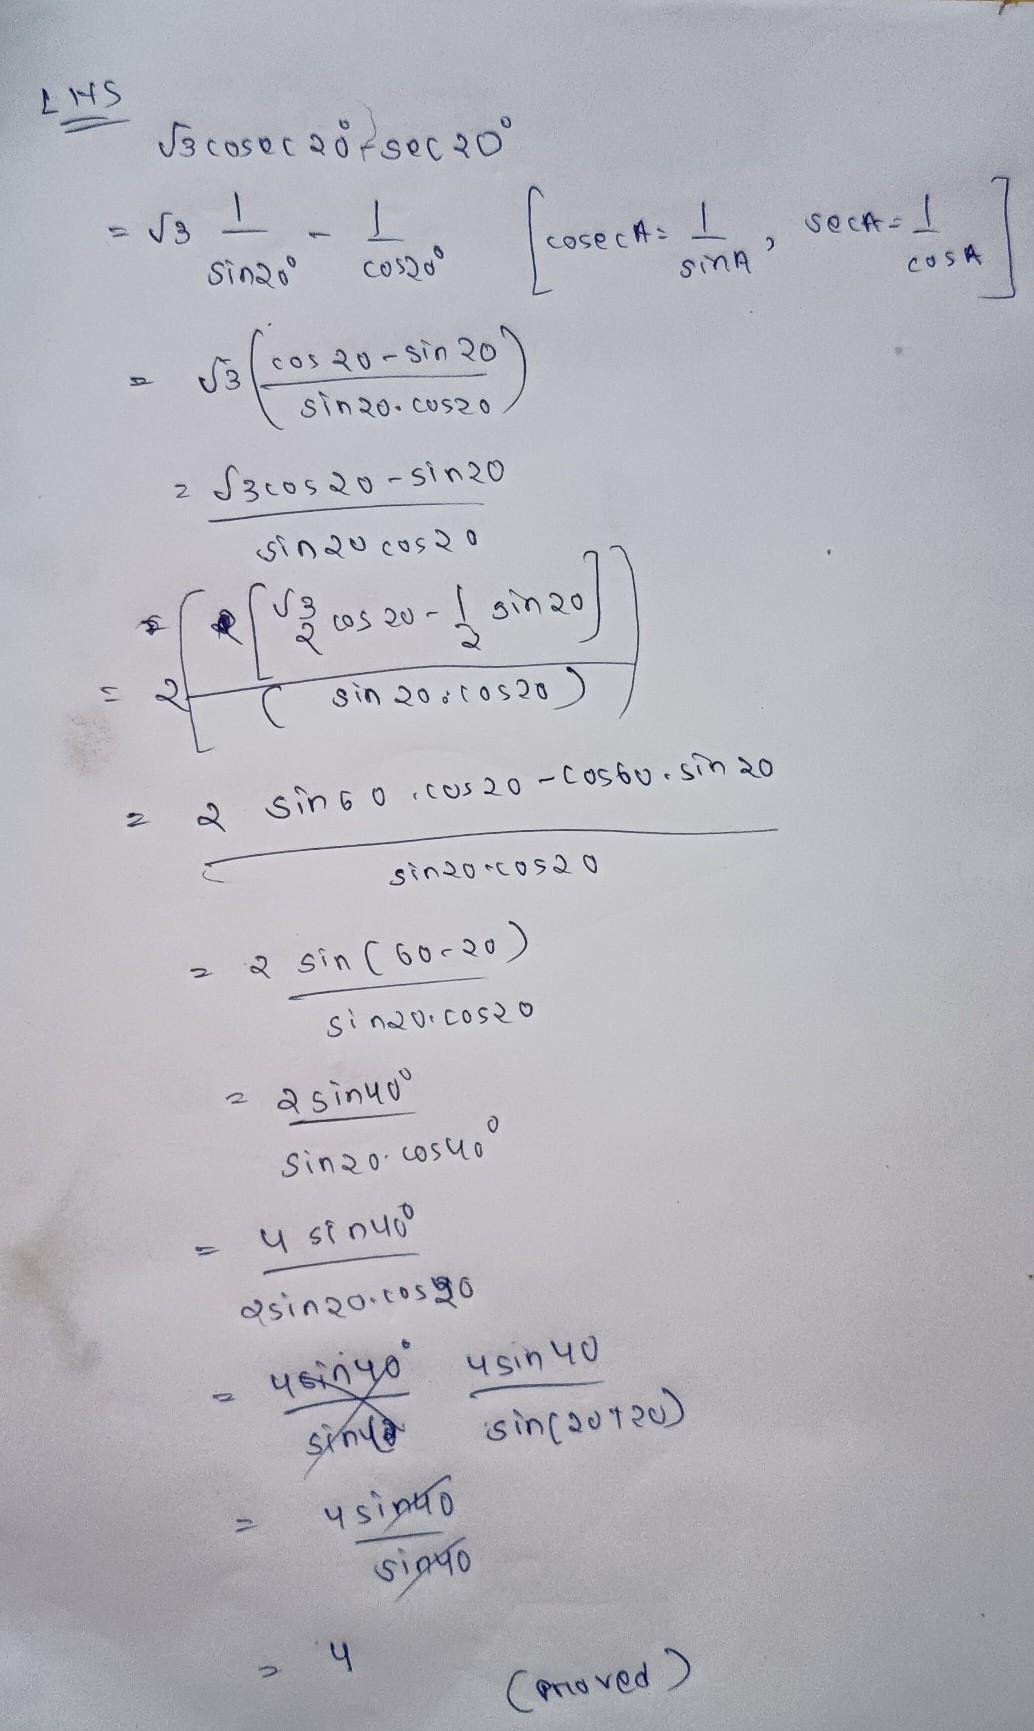 LHS
√3 cosec 20° - sec 20°
= √3 1/sin20° - 1/cos20° [cosecA = 1/sinA, secA = 1/cosA]
= √3 (cos 20 - sin 20 / sin 20. cos20)
= √3 cos 20 - sin 20 / sin 20 cos 20
= 2 [[√3/2 cos 20 - 1/2 sin 20] / (sin 20. cos 20)]
= 2 sin 60 . cos 20 - cos 60 . sin 20 / sin 20 . cos 20
= 2 sin (60-20) / sin 20. cos 20
= 2 sin 40° / sin 20. cos 40°
= 4 sin 40° / 2 sin 20. cos 20
= 4 sin 40° / sin 40 4 sin 40 / sin(20+20)
= 4 sin 40 / sin 40
= 4 (proved)